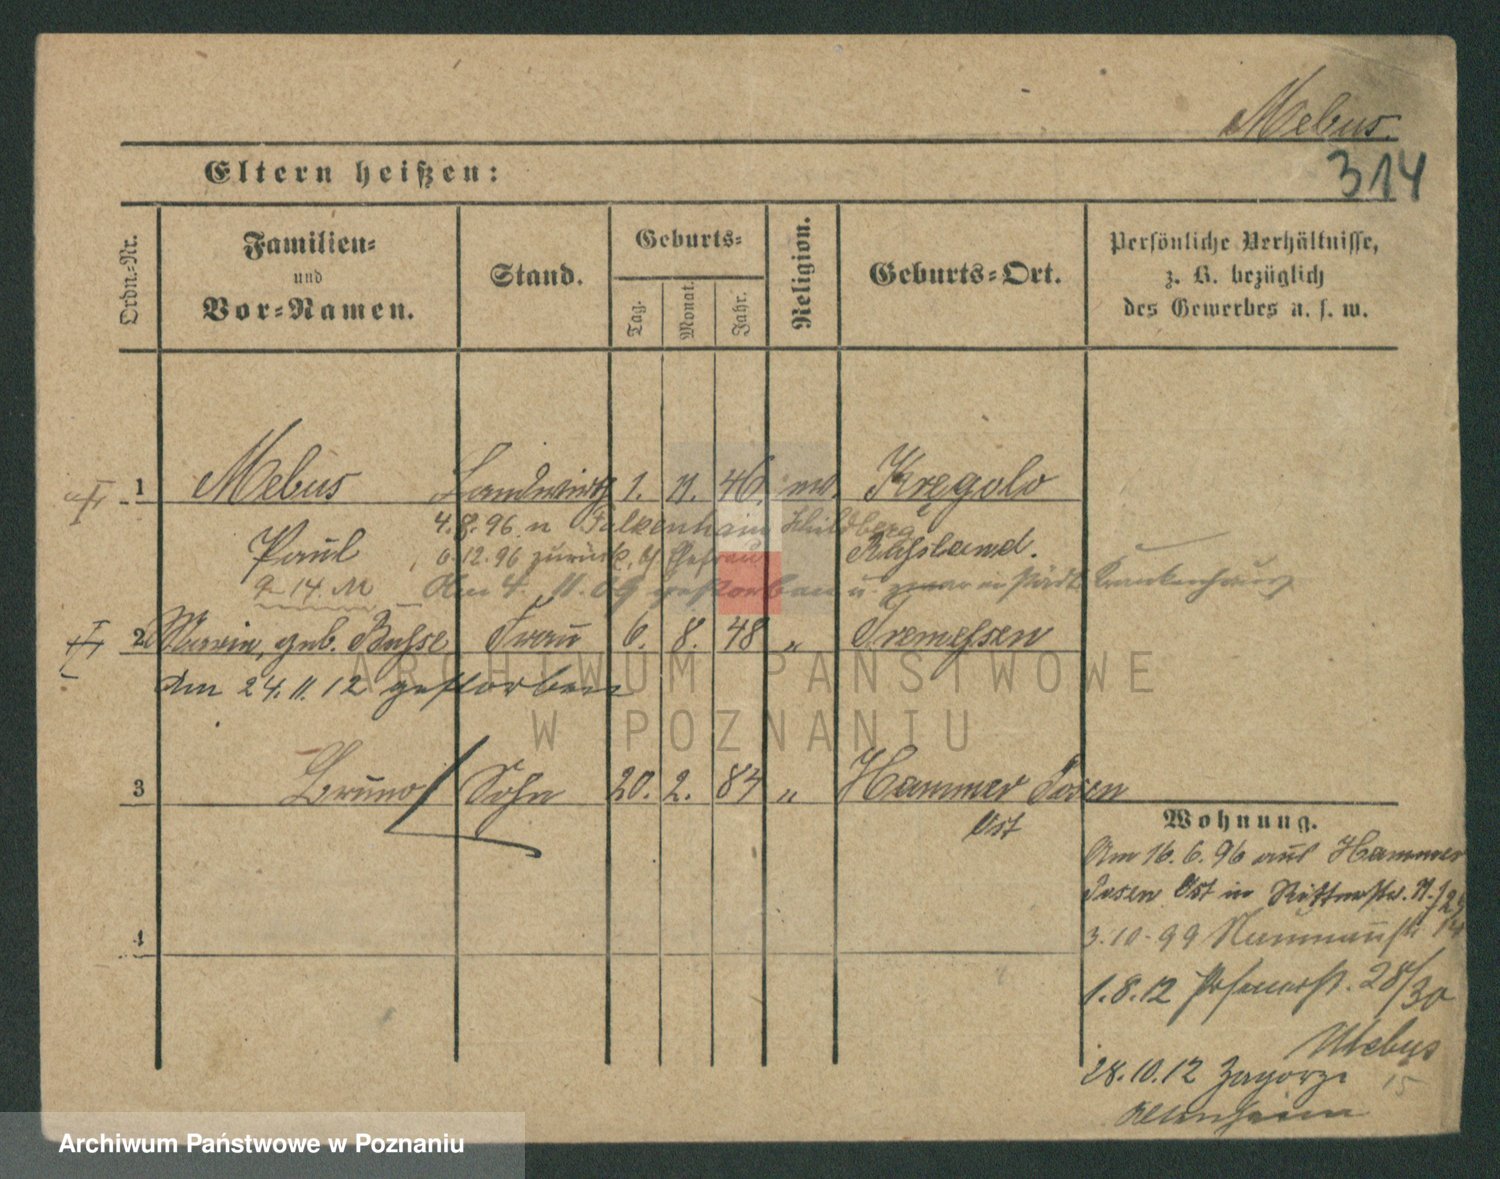 Mebus.
314
Eltern heißen:
Ordn.-Nr.
Familien- und Vor-Namen.
Stand.
Geburts-
Tag.
Monat.
Jahr.
Religion.
Geburts-Ort.
Persönliche Verhältnisse,
z. B. bezüglich
des Gewerbes u. s. w.
1 Mebus Landwirth 1. 11. 46. ev. Kręgolo
4.8.96 n Falkenhain Schildberg
Paul Russland.
6.12.96 zurück, Ehefrau
9-14. M Am 4. 11. 09 gestorben u. zwar in städt. Krankenhaus
2 Maria, geb. Busse Frau 6. 8. 48 " Tremessen
Am 24.11.12 gestorben
3 Bruno Sohn 20. 2. 84 " Hammer Posen
Ost
4
Wohnung.
Am 16.6.96 aus Hammer
Posen Ost in
3.10.99 Naumannstr. 14
1.8.12 Posenerstr. 28/30
Mebus
28.10.12 Zagorze
15
ARCHIWUM PAŃSTWOWE
W POZNANIU
Archiwum Państwowe w Poznaniu